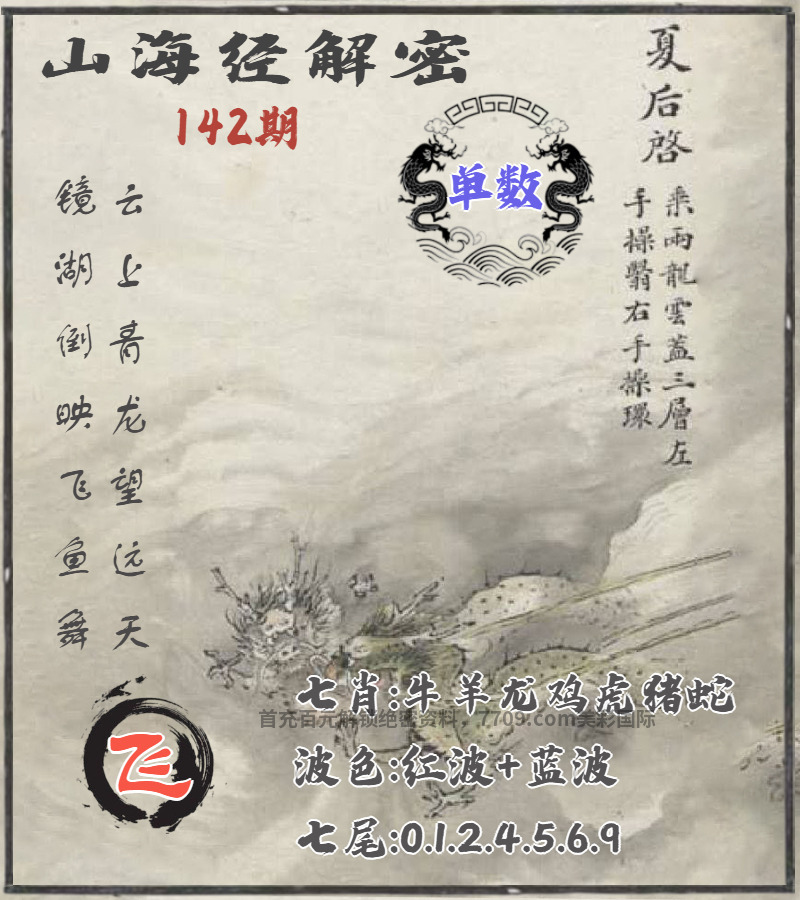 山海经解密
142期
单数
夏后启
乘两龍雲蓋三層左
手操翳右手操環
云上青龙望远天
镜湖倒映飞鱼舞
七肖:牛羊龙鸡虎猪蛇
首充百元解锁绝密资料，7709.com美彩国际
波色:红波+蓝波
七尾:0.1.2.4.5.6.9
飞